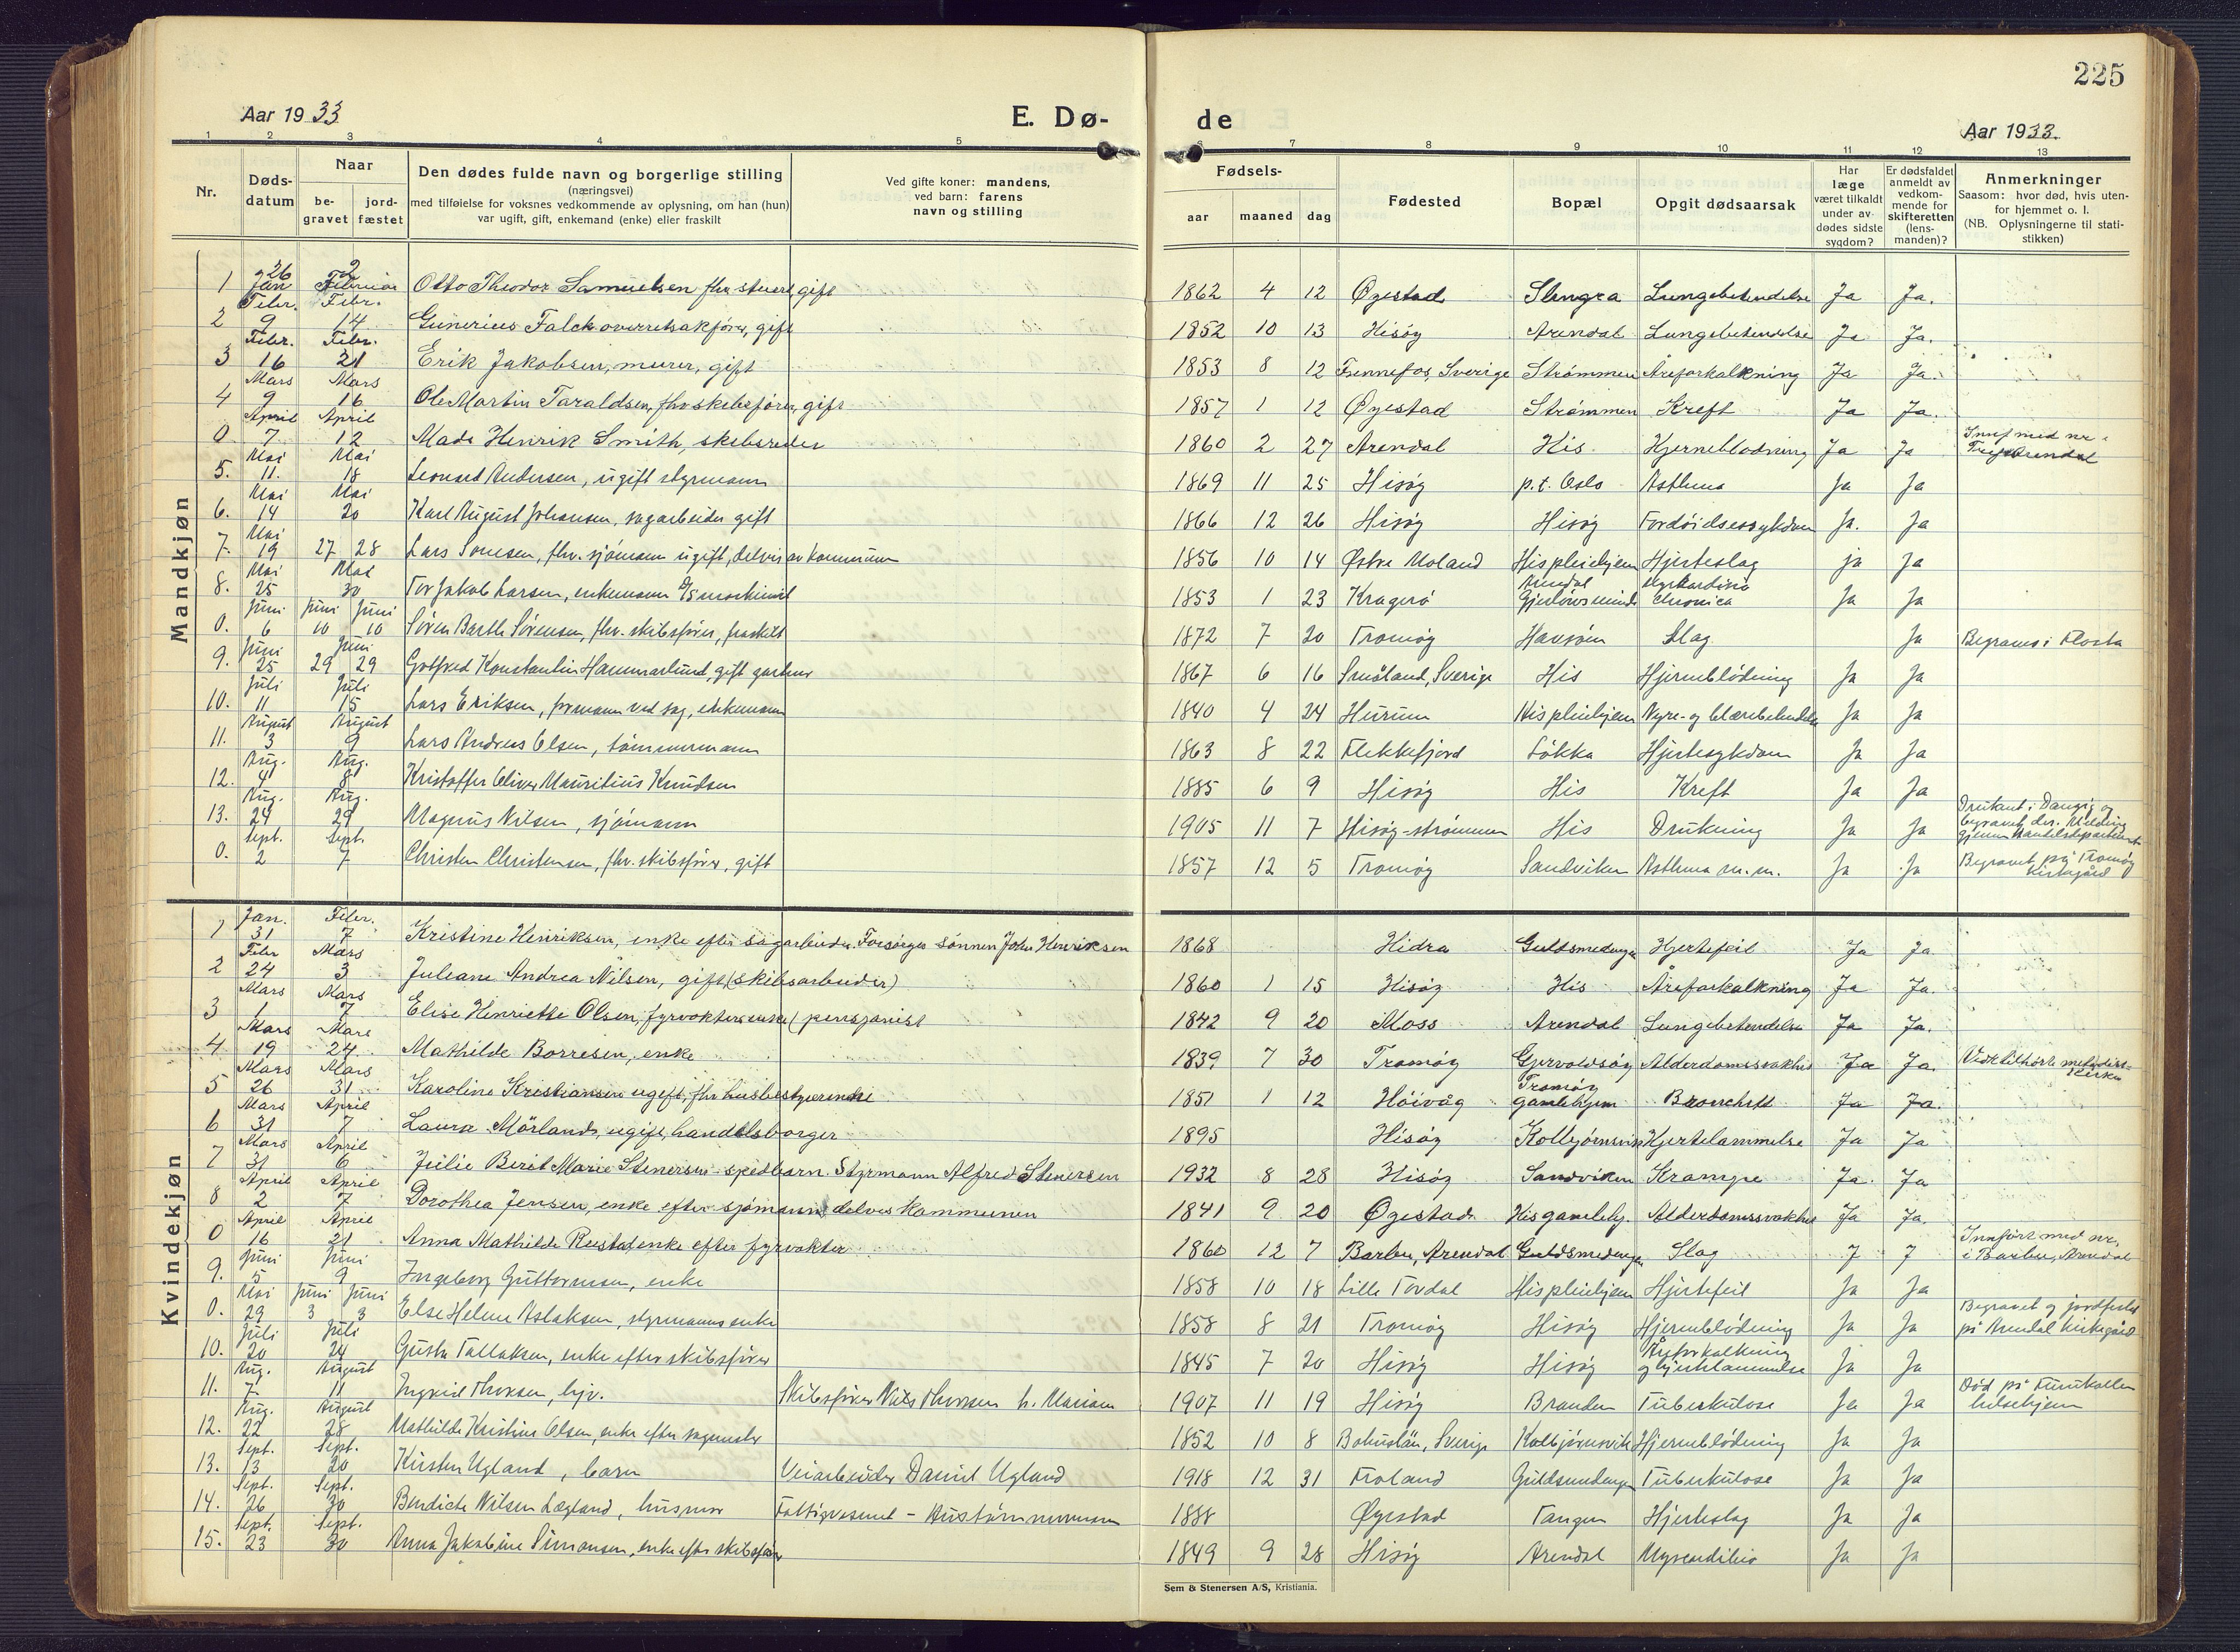 225
Aar 1933
E. Dø-
de
Aar 1933.
1 2 3 4 5
6 7 8 9 10 11 12 13
Nr.
Døds-
datum
Naar
be-
gravet
jord-
fæstet
Den dødes fulde navn og borgerlige stilling
(næringsvei)
med tilføielse for voksnes vedkommende av oplysning, om han (hun)
var ugift, gift, enkemand (enke) eller fraskilt
Ved gifte koner: mandens,
ved barn: farens
navn og stilling
Fødsels-
aar maaned dag
Fødested
Bopæl
Opgit dødsaarsak
Har
læge
været tilkaldt
under av-
dødes sidste
sygdom?
Er dødsfaldet
anmeldt av
vedkom-
mende for
skifteretten
(lens-
manden)?
Anmerkninger
Saasom: hvor død, hvis uten-
for hjemmet o. l.
(NB. Oplysningerne til stati-
stikken)
Mandkjøn
1 26 Jan 2 Februar Otto Theodor Samuelsen fhv stuert, gift 1862 4 12 Øyestad Slengra Lungebetendelse Ja Ja.
2 Febr. 9 Febr. 14 Gunerius Falck overretsakfører, gift 1852 10 13 Hisøy Arendal Lungebetendelse Ja Ja.
3 Febr. 16 Febr. 21 Erik Jakobsen, murer, gift 1853 8 12 Fennefos, Sverige Strømmen Åreforkalkning Ja Ja.
4 Mars 9 Mars 16 Ole Martin Taraldsen, fhv skibsfører, gift 1857 1 12 Øyestad Strømmen Kreft Ja Ja.
0 April 7 April 12 Mads Henrik Smith, skibsreder 1860 2 27 Arendal His Hjerneblødning Ja Ja Innf med nr i Arendal
5. Mai 11. Mai 18 Leonard Andersen, ugift styrmann 1869 11 25 Hisøy p.t. Oslo Asthma Ja Ja
6. Mai 14 Mai 20 Karl August Johansen, sagarbeider gift 1866 12 26 Hisøy Hisøy Fordøielsessykdom Ja. Ja
7. Mai 19 27 28 Lars Sonesen, fhv. sjømann ugift, delvis av kommunen 1856 10 14 Østre Moland His pleiehjem Hjerteslag ja Ja
8. Mai 25 Mai 30 Tor Jakob Larsen, enkemann maskinist 1853 1 23 Kragerø Arendal Gjerløwsminde Myokarditis chronica Ja Ja
0. Juni 6 Juni 10 Juni 10 Søren Barth Sørensen, fhv. skibsfører, fraskilt 1872 7 20 Tromøy Havsøen Slag. Ja Begraves i Flosta
9. Juni 25 29 Juni 29 Gotfred Konstantin Hammarlund, gift gartner 1867 6 16 Småland, Sverige His Hjerneblødning Ja Ja
10. Juli 11 Juli 15 Lars Eriksen, formann ved sag, enkemann 1840 4 24 Hurum His pleiehjem Nyre- og blærebetendelse Ja Ja
11. August 3 August 9 Lars Andreas Olsen, tømmermann 1863 8 22 Flekkefjord Løkka Hjertesykdom Ja Ja
12. Aug. 4 Aug. 8 Kristoffer Oliver Mauritius Knudsen 1885 6 9 Hisøy His Kreft Ja Ja
13. Aug. 24 Aug. 29 Magnus Nilsen, sjømann 1905 11 7 Hisøy-strømmen His Drukning Ja Ja Druknet i Danzig og begravet der. Melding gjennem handelsdepartementet
0. Sept. 2 Sept. 7 Christen Christensen, fhv. skibsfører, gift 1857 12 5 Tromøy Sandviken Asthma m.m. Ja Ja Begravet på Tromøy kirkegård
Kvindekjøn
1 Jan. 31 Febr. 7 Kristine Henriksen, enke efter sagarbeider. Forsørges sønnen John Henriksen 1868 Hidra Guldsmedengen Hjertefeil Ja Ja
2 Febr 24 Mars 3 Juleane Andrea Nilsen, gift (skibsarbeider) 1860 1 15 Hisøy His Åreforkalkning Ja Ja.
3 Mars 1 Mars 7 Elise Henriette Olsen, fyrvokters enke (pensjonist 1842 9 20 Moss Arendal Lungebetendelse Ja Ja.
4 Mars 19 Mars 24 Mathilde Borresen, enke 1839 7 30 Tromøy Gjervoldsøy Alderdomssvakhet Ja Ja. metodistkirken
5 Mars 26 Mars 31 Karoline Kristiansen ugift, fhv husbestyrerinde 1851 1 12 Høivåg Tromøy gamlehjem Bronchitt Ja Ja.
6 Mars 31 April 7 Laura Mörland, ugift, handelsborger 1895 Hisøy Kolbjørnsvik Hjertelammelse Ja Ja
7 Mars 31 April 6 Julie Berit Marie Stenersen spedbarn. Styrmann Alfred Stenersen 1932 8 28 Hisøy Sandviken Krampe Ja. Ja
8 April 2 April 7 Dorothea Jensen, enke efter sjømann delvis kommunen 1841 9 20 Øyestad His gamlehj. Alderdomssvakhet Ja Ja.
0 April 16 April 21 Anna Mathilde Reistad enke efter fyrvokter 1860 12 7 Barbu, Arendal Guldsmedengen Slag J J Innført med nr. i Barbu, Arendal
9. Juni 5 Juni 9 Ingeborg Guttormsen, enke 1858 10 18 Lille Tovdal His pleiehjem Hjertefeil Ja Ja
0. Mai 29 Juni 3 Juni 3 Else Helene Aslaksen, styrmanns enke 1858 8 21 Tromøy Hisøy Hjerneblødning Ja Ja Begravet og jordfestet på Arendal kirkegård
10. Juli 20 Juli 24 Gusta Tallaksen, enke efter skibsfører 1845 7 20 Hisøy Hisøy Åreforkalkning og hjertelammelse Ja Ja
11. Aug. 7 August 11 Ingrid Thorsen, hjv. Skibsfører Nils Thorsen h. Mariam 1907 11 19 Hisøy Branden Tuberkulose Ja Ja Død på Furukollen helsehjem
12. Aug. 22 August 28 Mathilde Kristine Olsen, enke efter sagmester 1852 10 8 Bohuslän, Sverige Kolbjørnsvik Hjerneblødning Ja Ja
13. Sept. 13 Sept. 20 Kirsten Ugland, barn Veiarbeider Daniel Ugland 1918 12 31 Froland Guldsmedengen Tuberkulose Ja Ja
14. Sept. 26 Sept. 30 Bendicte Nilsen Lægland, husmor Fattigvesenet - Hustømmermann 1888 Øyestad Tangen Hjerteslag Ja Ja
15. Sept. 23 Sept. 30 Anna Jakobine Simonsen, enke efter skibsfører 1849 9 28 Hisøy Arendal Myocarditis Ja Ja
Sem & Stenersen A/S, Kristiania.